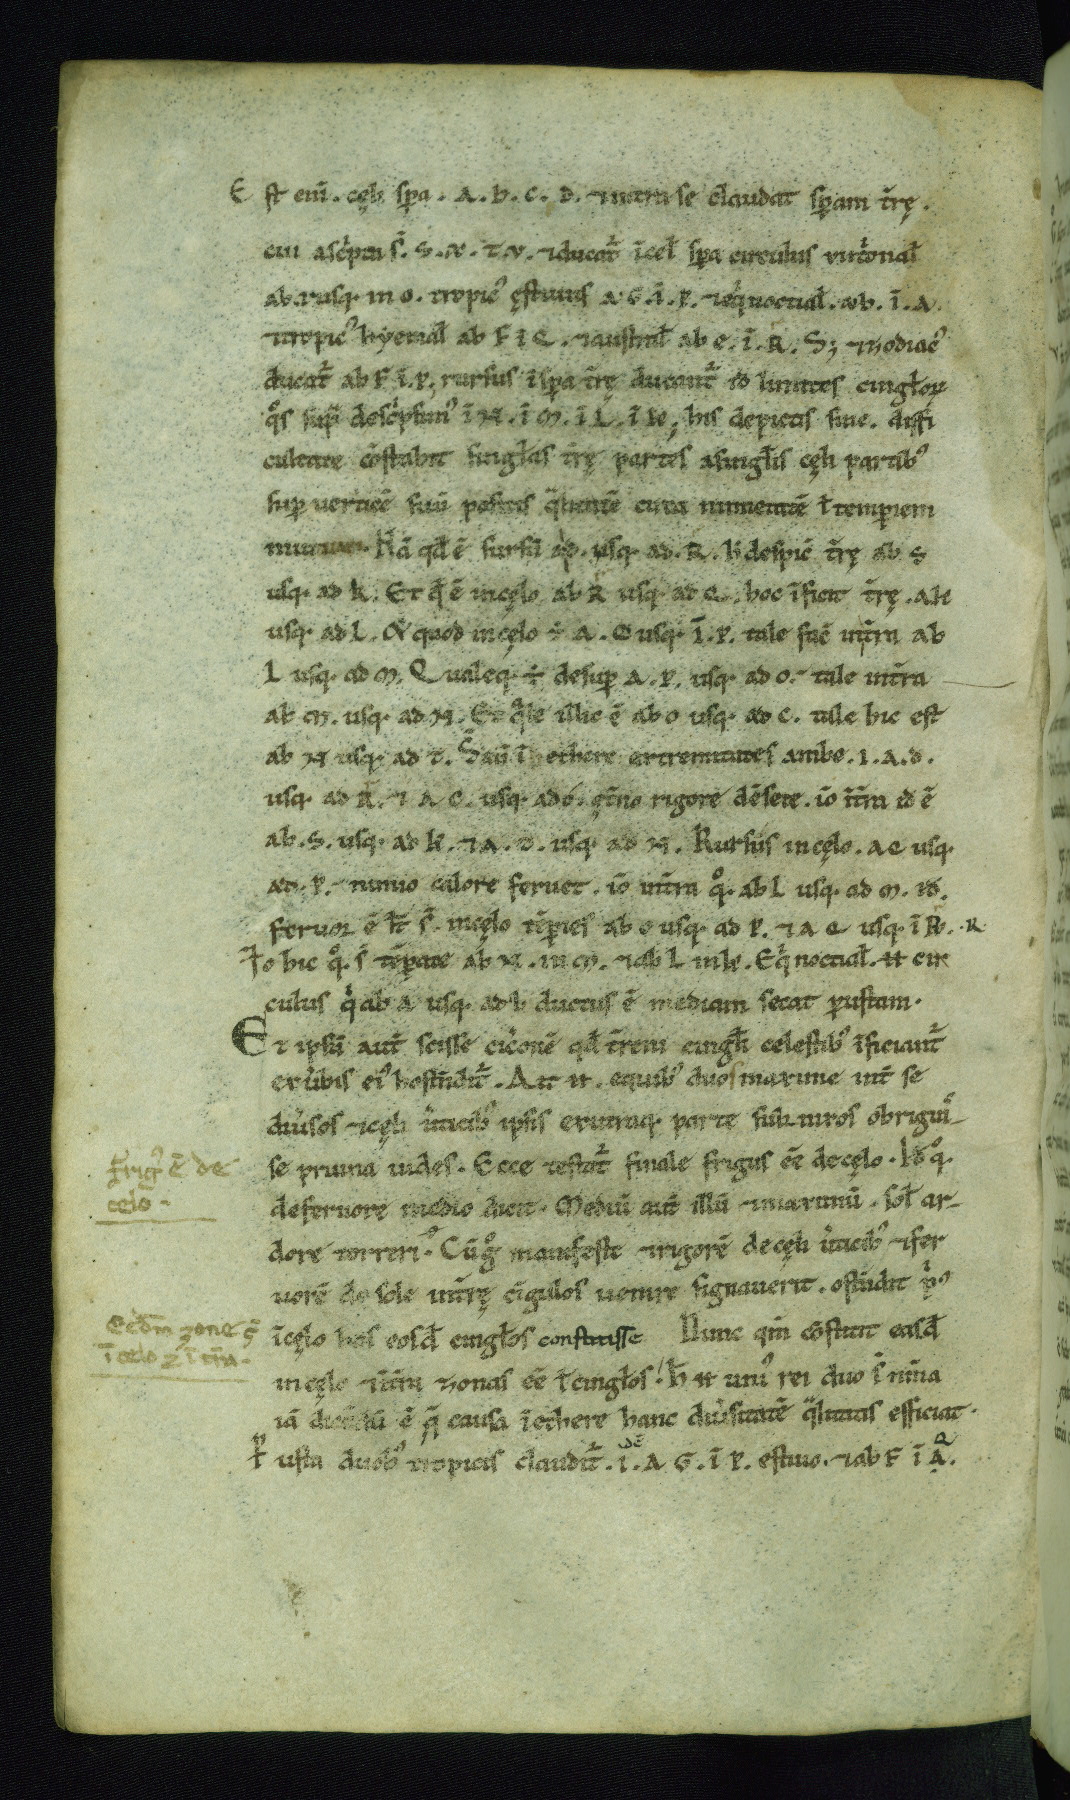 Est eni᷒. cęli spa. A. b. c. D. ⁊intra se claudat spam t̄rę.
cui asc̓pta s̄. S. X. T. V. ⁊ducat᷑ īcel̄ spa circulus
usq. in o. tropic᷒ ęstiuus A G. ī. P. ⁊eq̓noctial̄. ab. ī. A.
⁊tropic᷒ hyemal̄ ab F ī Q. ⁊austral̄ ab e. ī. R. S; ⁊zodiac᷒
ducat᷑ ab F. ī. P; rursus īspa t̄rę ducant᷑ id limites cingl̄oꝝ
q̊s sup̄ desc̓psim᷒ ī N. ī M. ī L. ī K; his depictis sine. diffi
cultate cōstabit singl̄as t̄rę partes asingl̄is cęli partib᷒
sup uerticē suū positis q̄litatē circa nimietatē ł temperiem
Nā qd̄ ē sursū ad. usq. ad. R. h̄ despic̄ t̄rę ab s
usq. ad k. Et q̄ ē incęlo ab R usq. ad Q. hoc īficit t̄rę. a k
usq. ad L. & quod incęlo ÷ A. Q usq. ī. P. tale facē int̄ra ab
L usq. ad M. Qualeq. ÷ desup A. P. usq. ad o. tale int̄ra
ab M. usq. ad N. Et q̄le illic ē ab o usq. ad c. tale hic est
ab N usq. ad t. S aū ī ethere extremitates ambo. i. A. d.
usq. ad R. ⁊ A C. usq. ad o. ęt̄no rigore dēsete. iō īt̄ra id ē
ab. S. usq. ad k. ⁊ A. T. usq. ad N. Rursus incęlo. A Q usq.
ad. P. nimio calore feruet. iō int̄ra q̊. ab L usq. ad M. id.
feruor ē h̄t s̄. incęlo tēperies ab o usq. ad P. ⁊ A Q usq. ī R. .R
Io hic q̊. s̄ tēperate ab N. in M. ⁊ab L in k. Eq̓noctial̄. ⁊t cir
culus q̓ ab a usq. ad b ductus ē mediam secat pustam.
Et ipsū aut̄ scisse cic̓onē qd̄ t̄reni cingl̄i celestib᷒ īficiant᷑
exūbis ei᷒ hostn̄dit᷑. Ait ⁊t. equib᷒ duos maxime int̄ se
diūsos ⁊cęli ūticib᷒ ipsis exutraq. parte subnixos obrigui᷒-
se pruina uides. Ecce testat᷑ finale frigus eē decęlo. Id q̊.
deferuore medio dicit. Mediū aut̄ illū ⁊maximū. sol̄ ar-
dore torreri. Cūg̊ manifeste ⁊rigorē decęli ūticib᷒ ⁊fer
uorē de sole int̄rę cīgulos uenire signauerit. ostn̄dit p̓᷒
īcęlo hos eosd̄ cingl̄os constitisse Nunc qm̄ cōstitit easd̄
incęlo ⁊īt̄ra zonas eē ł cingl̄os. h̄ ⁊t uni᷒ rei duo s̄ nīna
iā dicēdū ē q̄ causa īethere hanc diūsitatē q̄litatis efficiat.
P̓ usta duob᷒ tropicis claudit᷑. i. A G. ī P. estiuo. ⁊ab F ī Q.
f̄rig᷒ ē de
celo.
Eedm̄ zone s̄
ī celo ⁊ ī t̄ra.